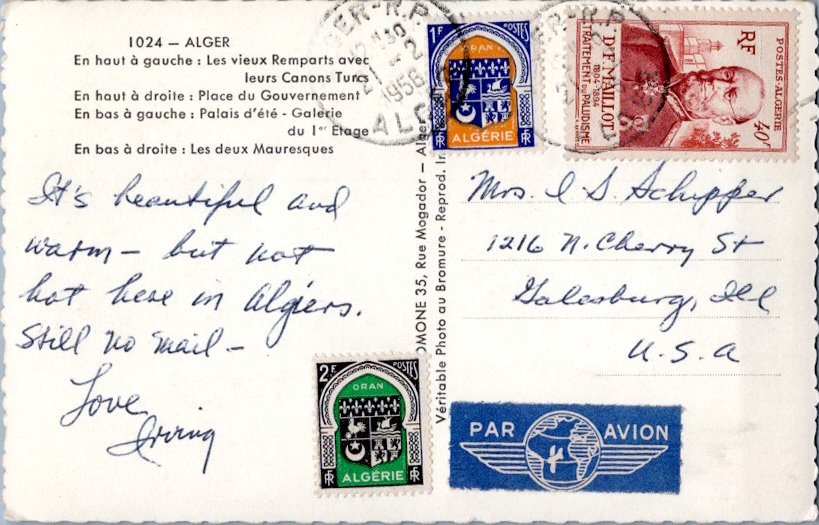 1024 — ALGER
En haut à gauche : Les vieux Remparts avec
leurs Canons Turcs
En haut à droite : Place du Gouvernement
En bas à gauche : Palais d'été - Galerie
du 1er Etage
En bas à droite : Les deux Mauresques
It's beautiful and
warm — but not
hot here in Algiers.
Still no mail —
Love
Irving
OMONE 35, Rue Mogador — Alger
Véritable Photo au Bromure - Reprod. In
GER-R.P.
1958
ALG
1F POSTES
ORAN
ALGÉRIE
RF
POSTES-ALGERIE
RF
Dr F. MAILLOT
1804-1894
TRAITEMENT DU PALUDISME
40F
Mrs. I S. Schupper
1216 N. Cherry St
Galesburg, Ill
U.S.A
2F POSTES
ORAN
ALGÉRIE
RF
PAR AVION